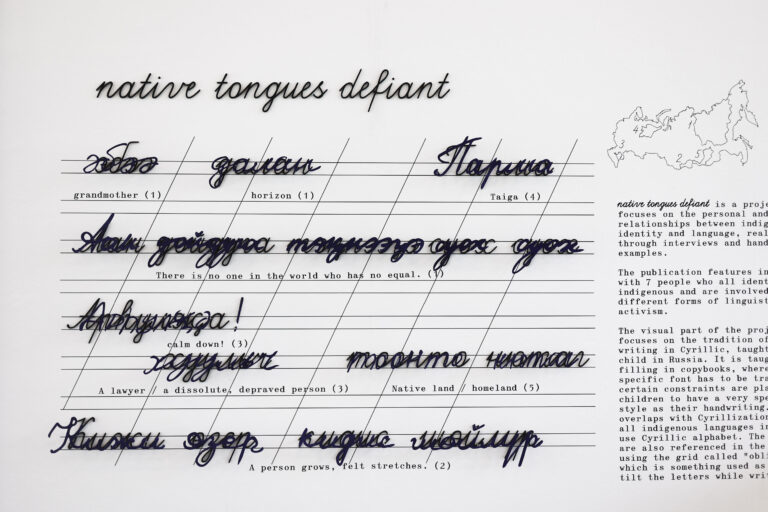 native tongues defiant
эбээ далан Парма
grandmother (1) horizon (1) Taiga (4)
Аан дойдуга тэҥнээҕэ суох суох
There is no one in the world who has no equal.
calm down! (3)
тоонто нютаг
A lawyer / a dissolute, depraved person (3) Native land / homeland (5)
Кижи
A person grows, felt stretches. (2)
native tongues defiant is a proje
focuses on the personal and
relationships between indig
identity and language, real
through interviews and hand
examples.
The publication features in
with 7 people who all ident
indigenous and are involved
different forms of linguist
activism.
The visual part of the proj
focuses on the tradition of
writing in Cyrillic, taught
child in Russia. It is taug
filling in copybooks, where
specific font has to be tra
certain constraints are pla
children to have a very spe
style as their handwriting.
overlaps with Cyrillization
all indigenous languages in
use Cyrillic alphabet. The
are also referenced in the
using the grid called "obli
which is something used as
tilt the letters while writ